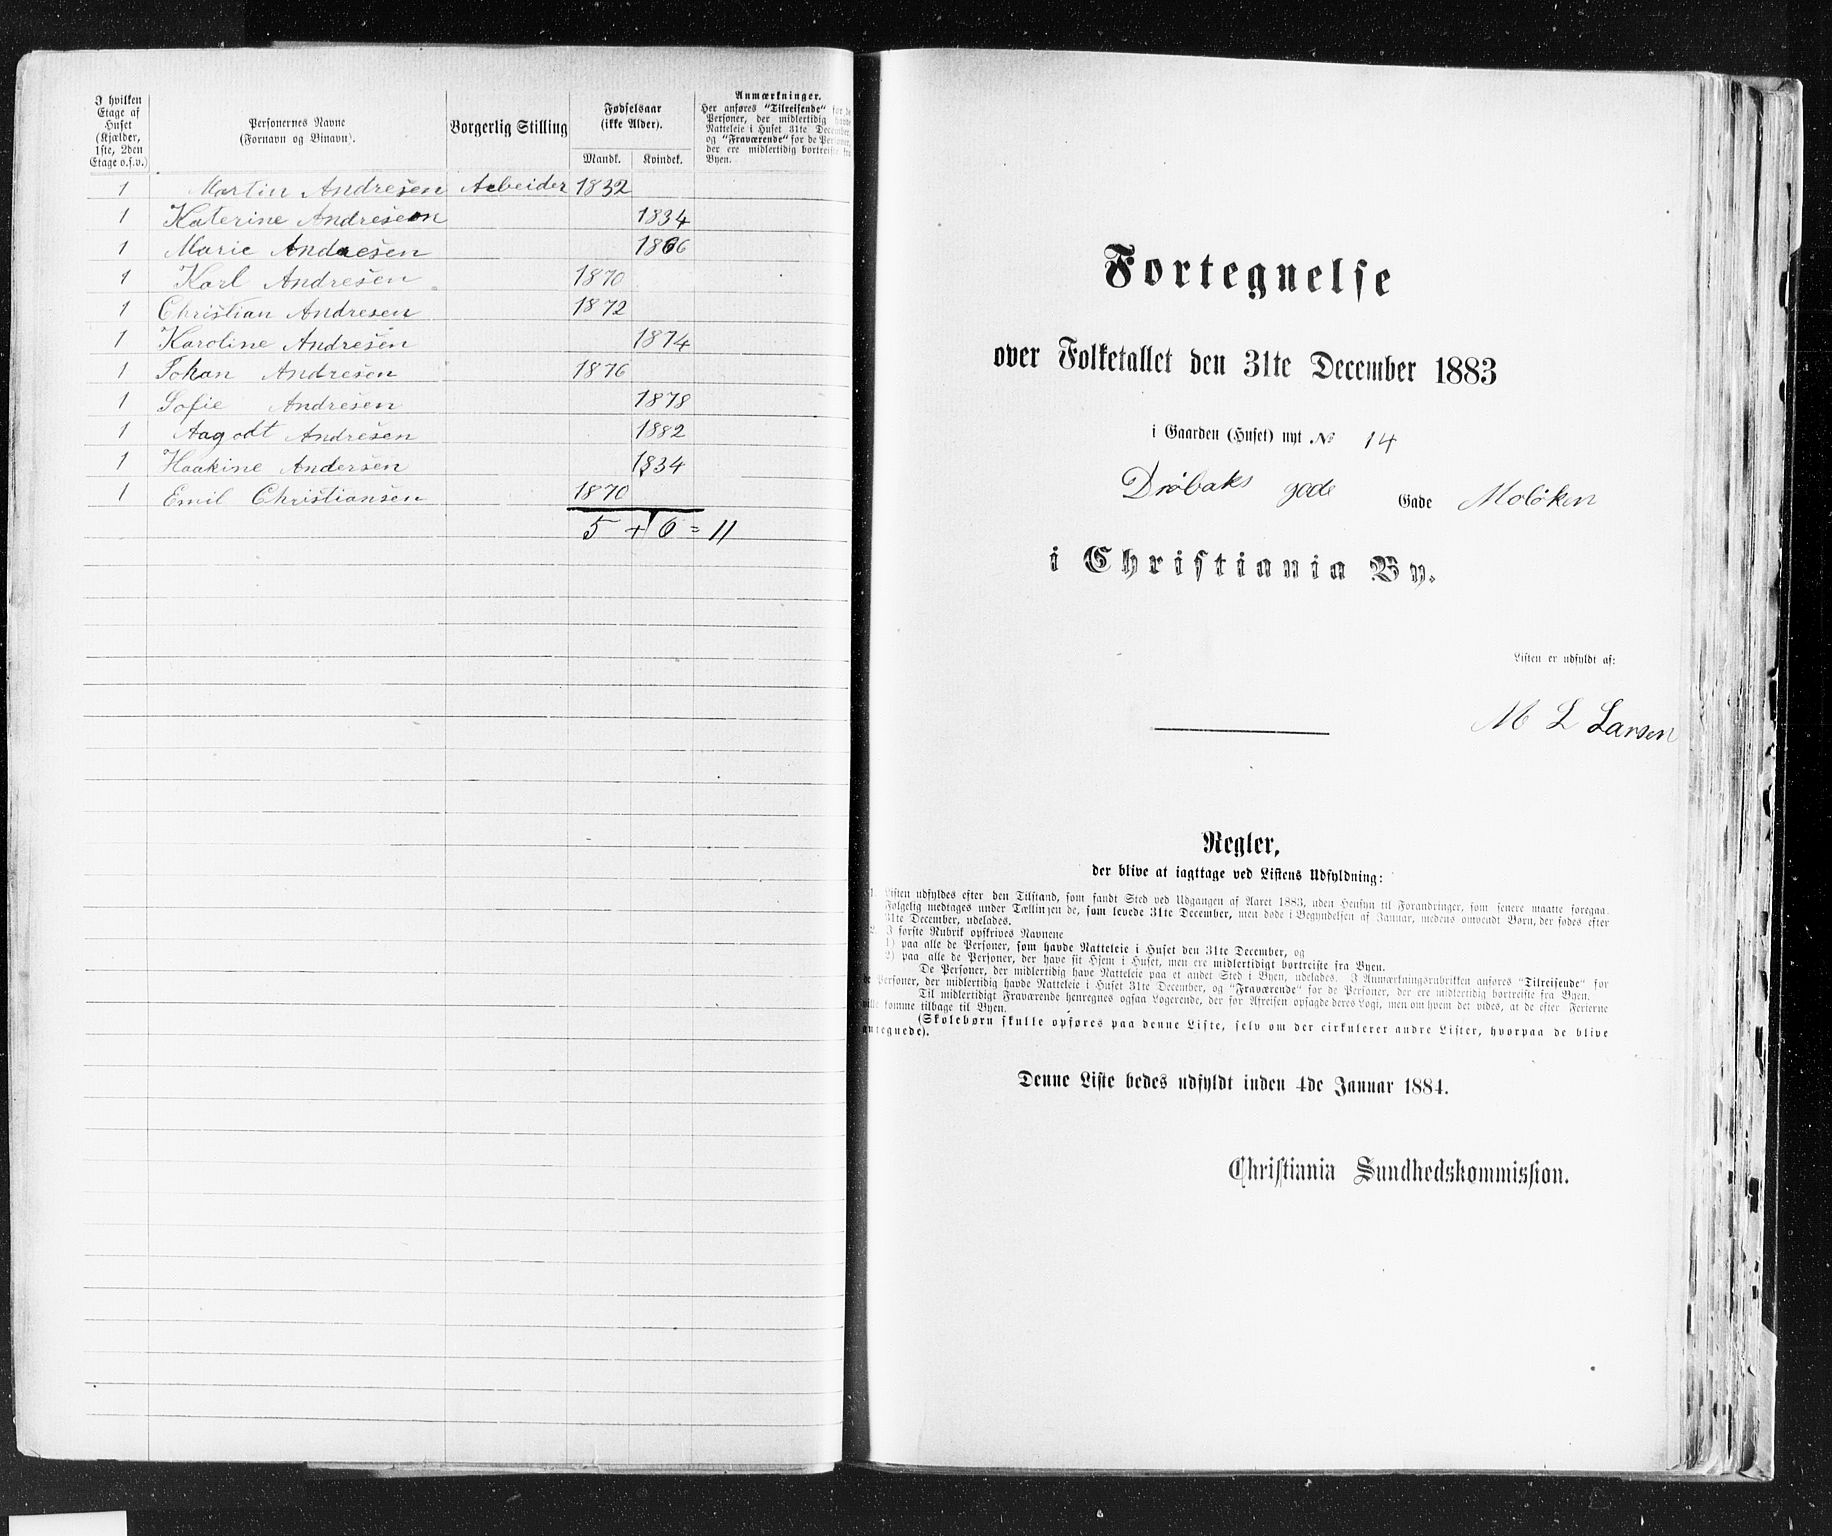 I hvilken Etage af Huset (Kjælder, 1ste, 2den Etage o.s.v.)
Personernes Navne (Fornavn og Binavn).
Borgerlig Stilling
Fødselsaar (ikke Alder).
Mandk. Kvindek.
Anmærkninger.
Her anføres "Tilreisende" for de
Personer, der midlertidig havde
Natteleie i Huset 31te December,
og "Fraværende" for de Personer,
der ere midlertidig bortreiste fra
Byen.
1 Martin Andresen Arbeider 1832
1 Katerine Andresen 1834
1 Marie Andresen 1866
1 Karl Andresen 1870
1 Christian Andresen 1872
1 Karoline Andresen 1874
1 Johan Andresen 1876
1 Sofie Andresen 1878
1 Aagodt Andresen 1882
1 Haakine Andersen 1834
1 Emil Christiansen 1870
5 + 6 = 11
Fortegnelse
over Folketallet den 31te December 1883
i Gaarden (Huset) nyt No 14
Drøbaks gade Gade
i Christiania By.
Listen er udfyldt af:
M L Larsen
Regler,
der blive at iagttage ved Listens Udfyldning:
1. Listen udfyldes efter den Tilstand, som fandt Sted ved Udgangen af Aaret 1883, uden Hensyn til Forandringer, som senere maatte foregaa.
Følgelig medtages under Tællingen de, som levede 31te December, men døde i Begyndelsen af Januar, medens omvendt Børn, der fødes efter
31te December, udelades.
2. I første Rubrik opskrives Navnene
1) paa alle de Personer, som havde Natteleie i Huset den 31te December, og
2) paa alle de Personer, der have sit Hjem i Huset, men ere midlertidigt bortreiste fra Byen.
De Personer, der midlertidig have Natteleie paa et andet Sted i Byen, udelades. I Anmærkningsrubrikken anføres "Tilreisende" for
de Personer, der midlertidig havde Natteleie i Huset 31te December, og "Fraværende" for de Personer, der ere midlertidig bortreiste fra Byen.
Til midlertidigt Fraværende henregnes ogsaa Logerende, der før Afreisen opsagde deres Logi, men om hvem det vides, at de efter Ferierne
ville komme tilbage til Byen.
(Skolebørn skulle opføres paa denne Liste, selv om der cirkulerer andre Lister, hvorpaa de blive
antegnede).
Denne Liste bedes udfyldt inden 4de Januar 1884.
Christiania Sundhedskommission.